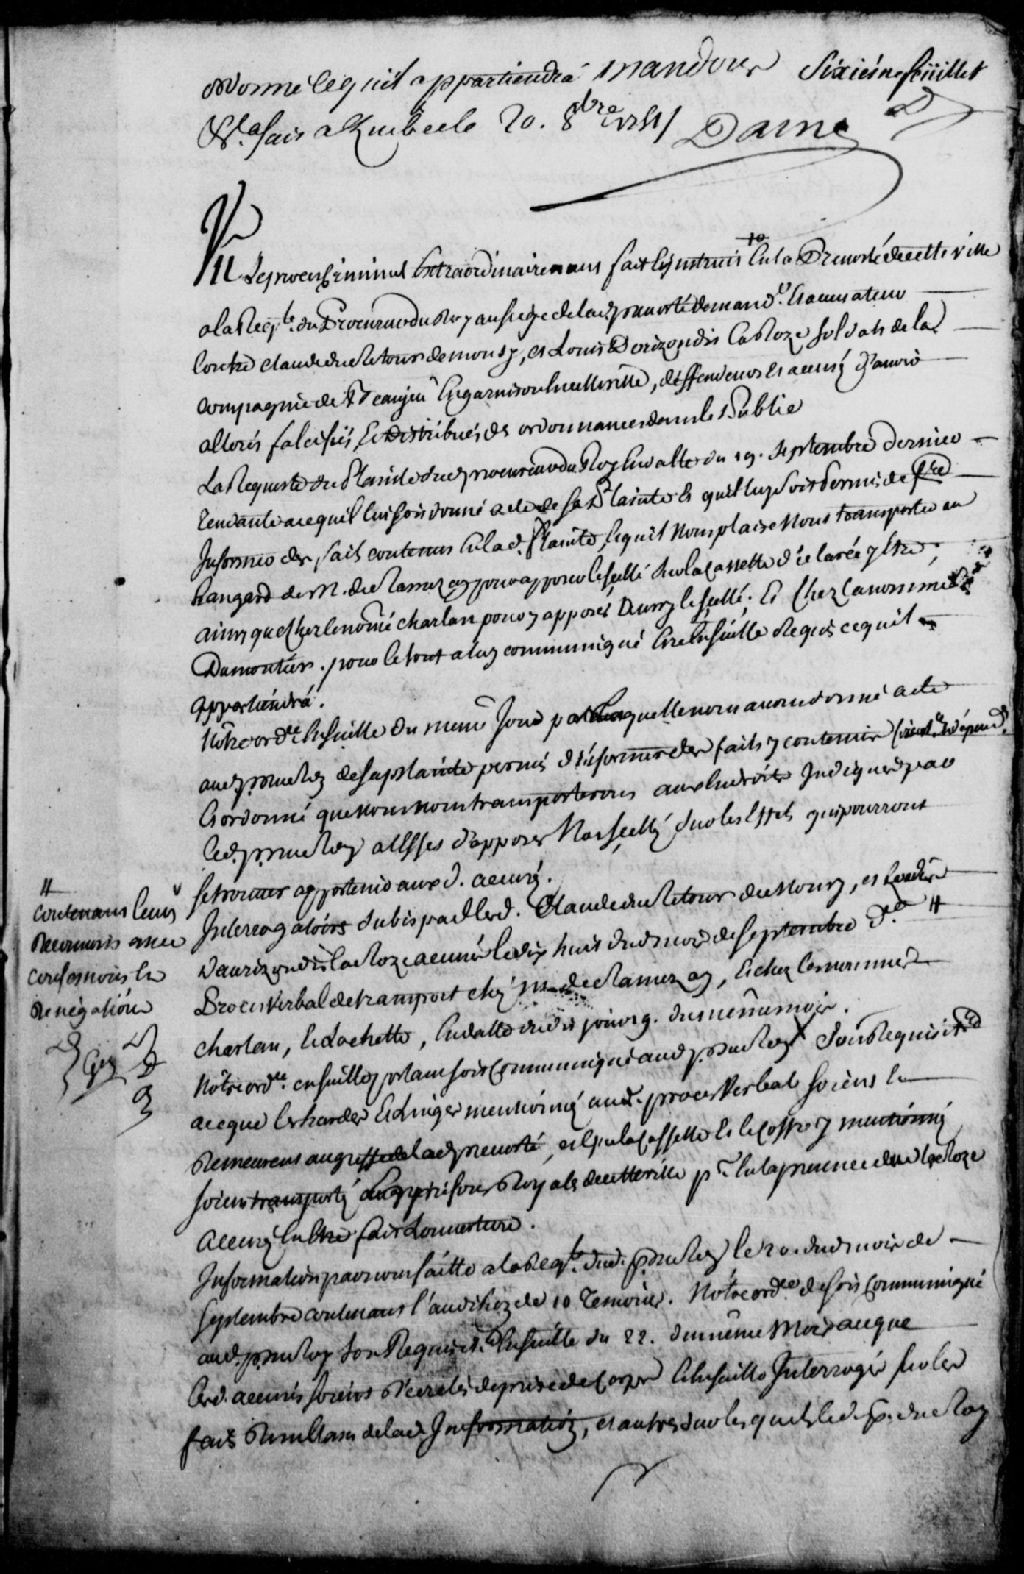 ordonné ce qu'il appartiendra mandons
Sixième feüillet
&.a fait a Quebec le 20. 8bre 1751/
Daine
Vu le proces Criminel Extraordinairement fait & instruit En la Prevosté de cette ville
a la Reqte. du Procureur du Roy au siege de lad. prevosté demandr. Et accusateur
Contre Claude du Retour de monsy, et Louis Dorizon dit LaRoze soldats de la
Compagnie de Beaujeu En garnison En cette ville, deffendeurs Et accusés d'avoir
alterés falcifiés, & distribués des ordonnances dans le Public
La Requeste de Plainte dud. procureur du Roy En datte du 19. Septembre dernier
Tendante a ce qu'il luy soit donné acte de sa Plainte Et qu'il luy soit Permis de faire
Informer des faits contenus En lad. Plainte, & qu'il Nous plaise Nous transporter au
hangard de M. de Ramezay pour apposer le scellé sur la Cassette declarée y Etre,
ainsy que chez le nommé charlan pour y apposer aussy le scellé; Et Chez la nommée
Damontier. pour le tout a luy communiqué Etre Ensuitte Requis ce qu'il
appartiendra.
Notre ordce. Ensuitte du meme Jour par laquelle nous avons donné acte
aud. procr. du Roy de sa plainte permis d'informer des faits y contenus
Et ordonné que nous nous transporterons aux Endroits Indiqués par
led. procr. du Roy a l'effet d'apposer Nos scellés sur les Effets qui pourront
se trouver appartenir auxd. accusés.
Interrogatoires subis par lesd. Claude du Retour de Monsy, et
Daurizon dit la Roze accusés le dix huit dud. mois de septembre d.er #
Proces Verbal de transport chez M. de Ramezay, & chez le nommé
charlan, & Lachette, En datte dud. jour 19. du même mois.
Notre ordce. ensuitte portant soit Communiqué aud. procr. du Roy son Requisit.re
a ce que les hardes Et Linges mentionné aud. proces Verbal soient
Remeurent au greffe de lad. prevosté, et que la Cassette Et le Coffre y mentionné
soient transporté Ez prisons Royales de cette ville pr. En la presence dud. la Roze
accusé En Etre fait Louverture.
Information par nous faitte a la Reqte. dud. procr. du Roy le 20. dud. mois de
Septembre contenant l'audition de 10 Temoins. Notre ordce. de soit Communiqué
aud. procr. du Roy Son Requisit.re Ensuitte du 22. du même Mois a ce que
lesd. accusés soient Decretés de prise de Corps Et Ensuitte Interrogés sur les
faits Resultans de lad. Information, et autres sur lesquels led. P. du Roy
#
contenant leurs
Reconnois
confessions &
Denegations